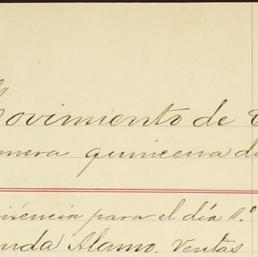 ovimiento de
mera quincena de
para el día 1.º
nda Alamo. Ventas